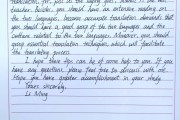 translation, for just as the saying goes, interest is the best
teacher. Besides, you should have an extensive reading on
the two languages, because accurate translation demands that
you should have a good grasp of the two languages and the
culture related to the two languages. Moreover, you should
grasp essential translation techniques, which will facilitate
the translating process.
I hope these tips can be of some help to you. If you
have any question, please feel free to discuss with me.
Hope you have greater accomplishment in your study.
Yours sincerely,
Li Ming